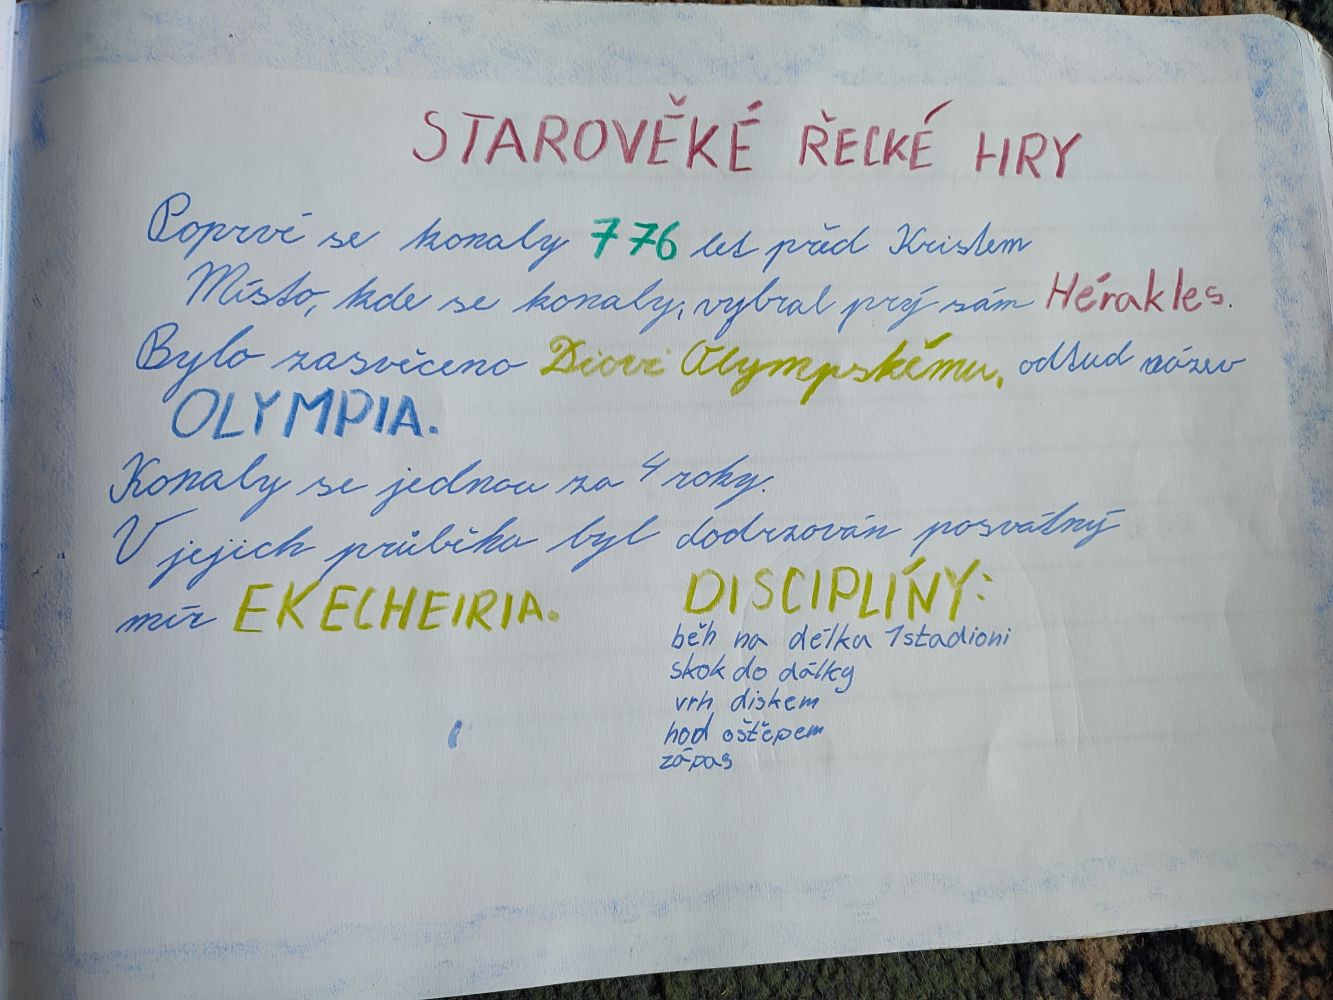 STAROVĚKÉ ŘECKÉ HRY
Poprvé se konaly 776 let před Kristem
Místo, kde se konaly, vybral prý sám Hérakles.
Bylo zasvěceno Diovi Olympskému, odtud název
OLYMPIA.
Konaly se jednou za 4 roky.
V jejich průběhu byl dodrzován posvátný
mír EKECHEIRIA.
DISCIPLÍNY:
běh na délku 1stadioni
skok do dálky
vrh diskem
hod oštěpem
zápas